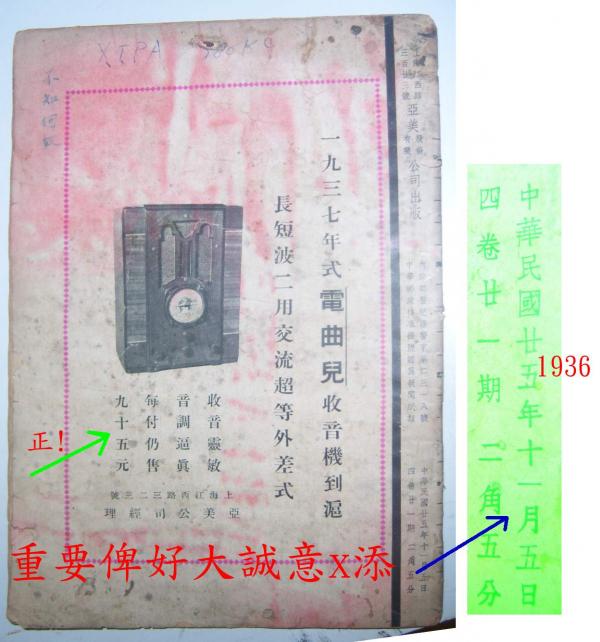 XTPA
亞美股份有限公司出版
中華民國廿五年十一月五日
四卷廿一期 二角五分
一九三七年式電曲兒收音機到滬
長短波二用交流超等外差式
收音靈敏
音調逼眞
每付仍售
九十五元
上海江西路三二三號
亞美公司經理
正!
重要俾好大誠意X添
中華民國廿五年十一月五日
四卷廿一期 二角五分
1936